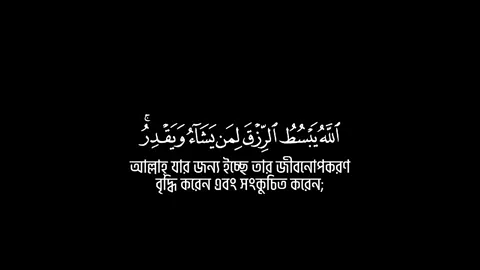 ٱللَّهُ يَبۡسُطُ ٱلرِّزۡقَ لِمَن يَشَآءُ وَيَقۡدِرُۚ
আল্লাহ যার জন্য ইচ্ছে তার জীবনোপকরণ
বৃদ্ধি করেন এবং সংকুচিত করেন;